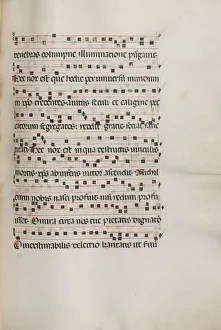 tenebras columpne illuminatione purgavit
Hec nox est que hodie per universum mundum
in xpo credentes a vitiis seculi et caligine pec
catorum segregatos: reddit gratie sociat sanc
titati Hec nox est in qua destructis vinculis
mortis xps ab inferis victor ascendit Nichil
enim nobis nasci profuit nisi redimi profu
isset O mira circa nos tue pietatis dignatio
O inestimabilis dilectio karitatis ut servu